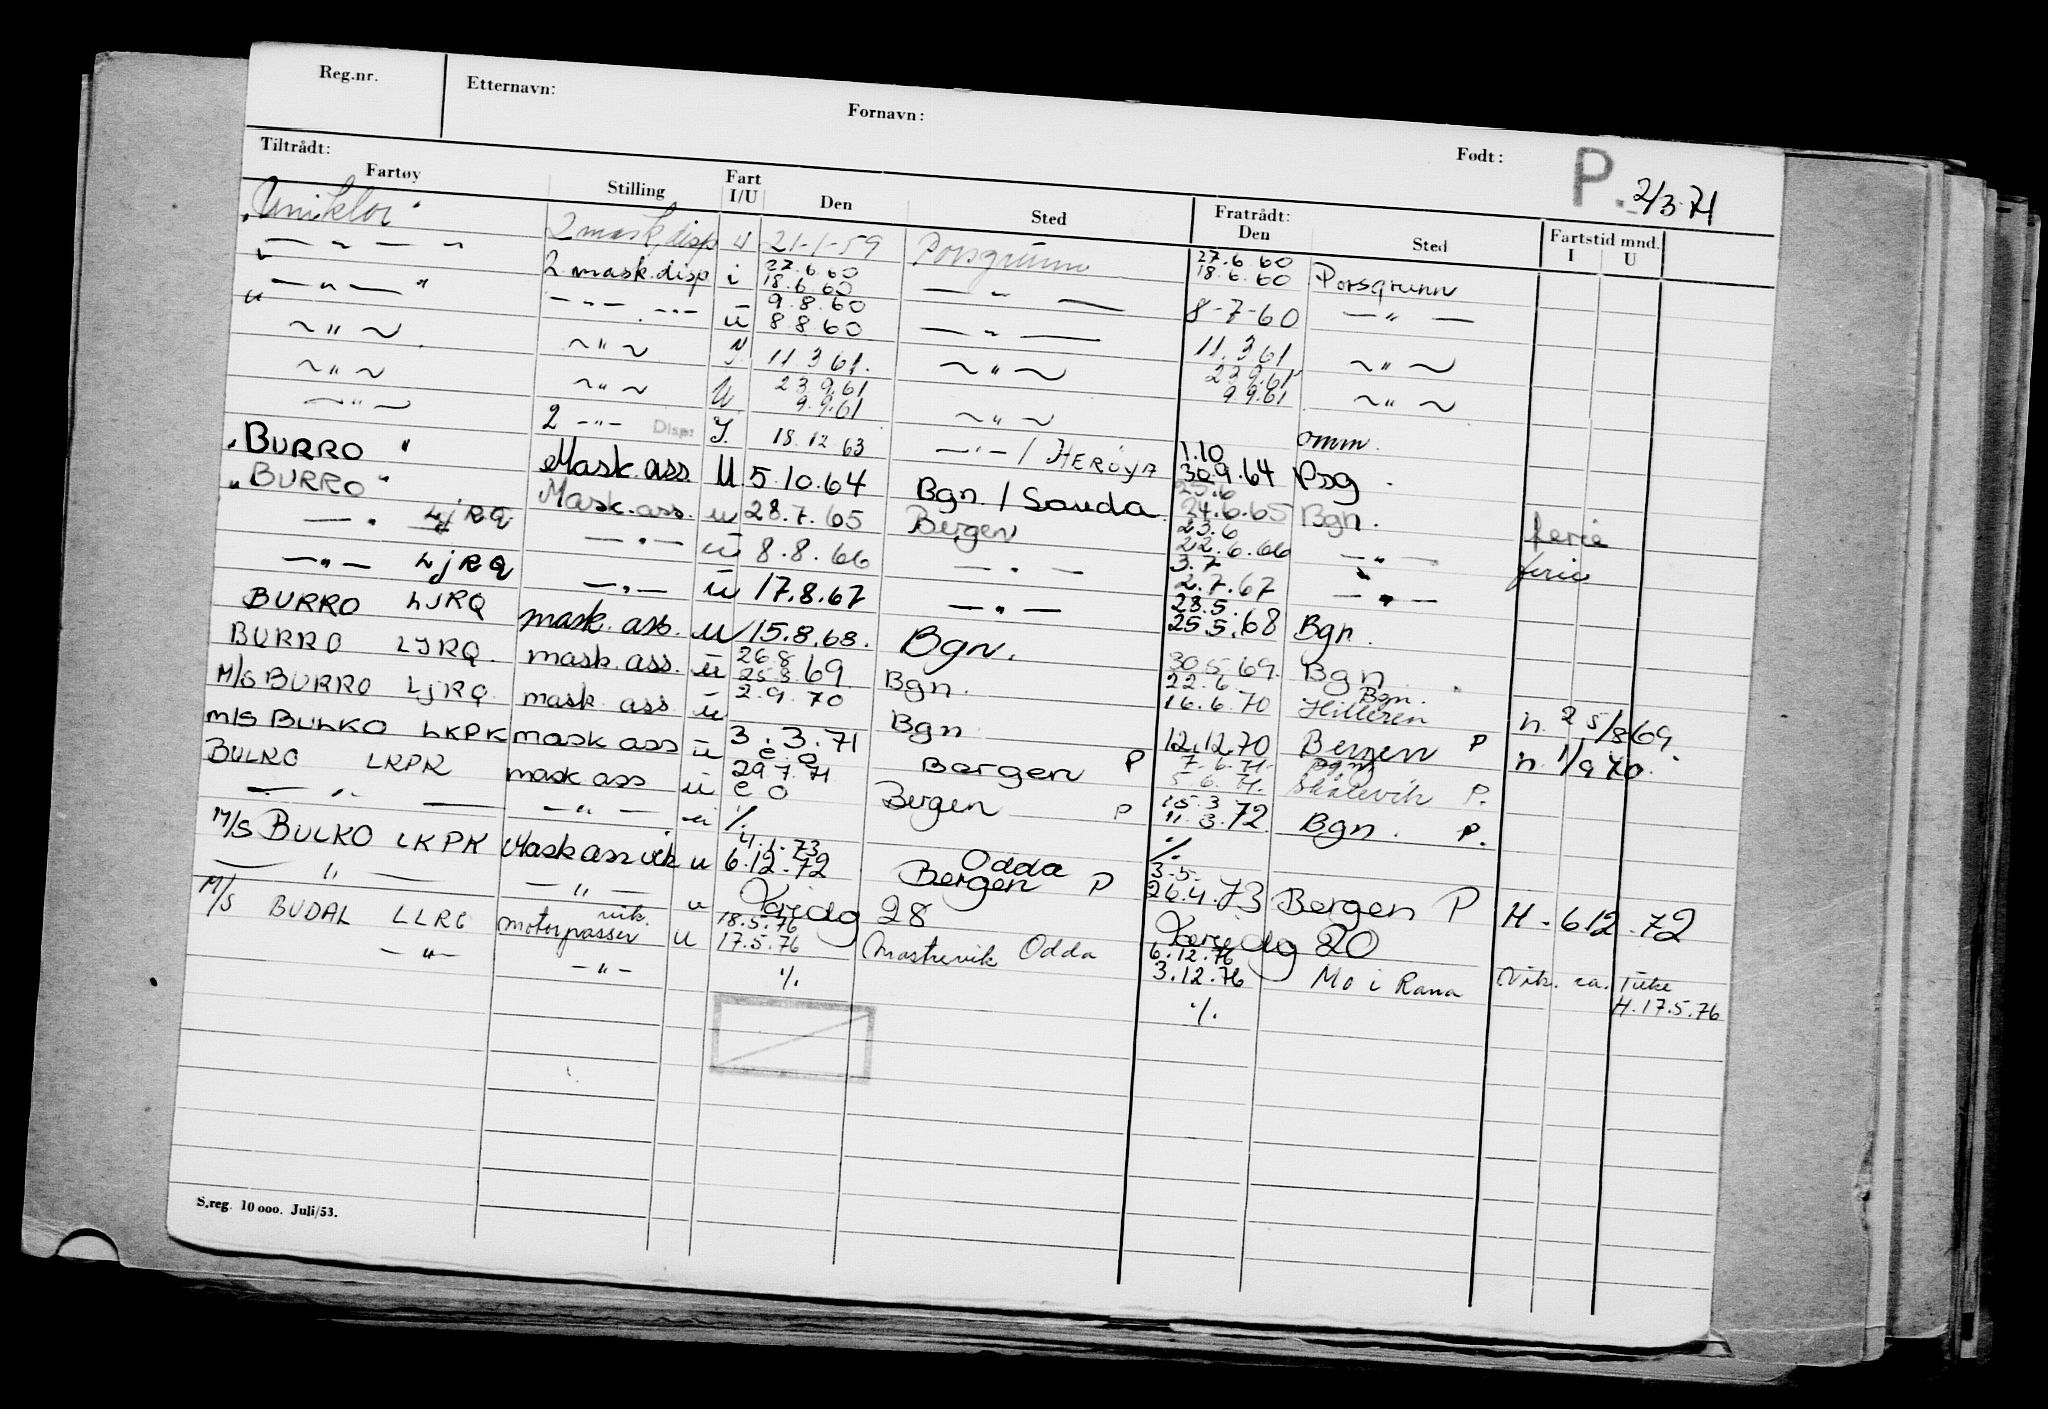 Reg.nr. Etternavn: Fornavn: Født: P. 2/3-71
Tiltrådt: Fratrådt: Fartstid mnd.
Fartøy Stilling Fart I/U Den Sted Den Sted I U
"Uniklor" 2 mask. disp U 21-1-59 Porsgrunn 27.6.60 18.6.60 Porsgrunn
— " — " 2 mask. disp i 27.6.60 18.6.60 — " — 8-7-60 — " —
— " — " — " — u 9.8.60 8.8.60 — " — 11.3.61 ~ " ~
~ " ~ ~ " ~ 11.3.61. ~ " ~ 9.9.61 ~ " ~
~ " ~ ~ " ~ U 23.9.61 9.9.61 ~ " ~ omm.
— " — 2 — " — Disp: I. 18.12.63 — " — / HERØYA 1.10 30.9.64 Psg.
"BURRO" Mask. ass. U 5.10.64 Bgn. / Sauda 25.6 24.6.65 Bgn. ferie
"BURRO" Mask. ass. u 28.7.65 Bergen 23.6 22.6.66 — " — ferie
— " LJRQ — " — u 8.8.66 — " — 3.7 2.7.67 — " —
— " — LJRQ — " — u 17.8.67 — " — 28.5. 25.5.68 Bgn.
BURRO LJRQ mask. ass. u 15.8.68. Bgn. 30.5.69. Bgn.
BURRO LJRQ. mask. ass. u 26.8 25.8.69 Bgn. 22.6. 16.6.70 Bgn. Hilleren n. 25/8 69.
M/S BURRO LJRQ. mask ass u 2.9.70 Bgn 12.12.70 Bergen P n. 1/9 70.
M/S BULKO LKPK mask ass u 3.3.71 e.o Bergen P 7.6.71. 5.6.71. Skålevik P.
BULKO LKPK mask ass u 29.7.71 e o Bergen P 15.3 11.3.72 Bgn. P.
— " — — " — u %. %.
M/S BULKO LKPK Mask ass vik u 4.1.73 6.12.72 Odda Bergen P 3.5. 26.4.73 Bergen P H - 6.12.72
— " — — " — u 28 20
M/S BUDAL LLRG vik. motorpasser u 18.5.76 17.5.76 Odda 6.12.76 3.12.76 Mo i Rana Vik. ca.
— " — — " — %. %. H. 17.5.76
S.reg. 10 000. Juli/53.